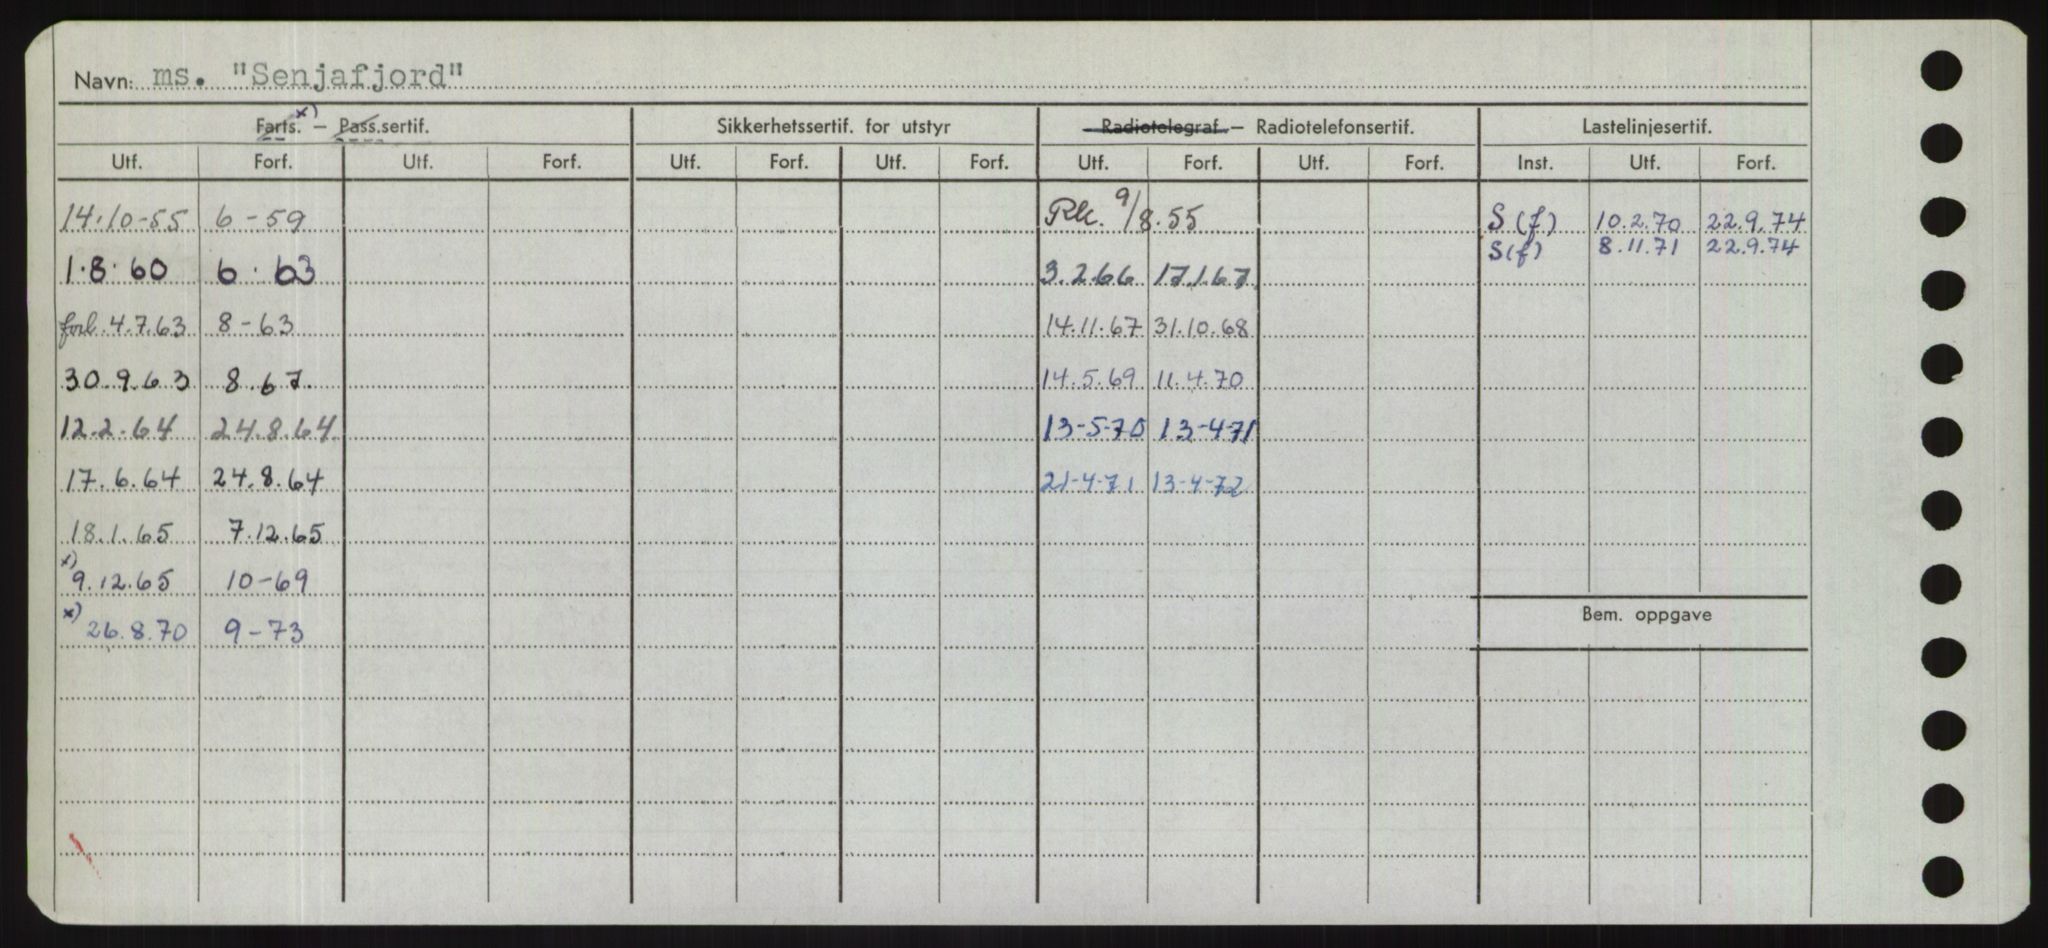 Navn: ms. "Senjafjord"
Farts. x) – Pass.sertif. Sikkerhetssertif. for utstyr Radiotelegraf – Radiotelefonsertif. Lastelinjesertif.
Utf. Forf. Utf. Forf. Utf. Forf. Utf. Forf. Utf. Forf. Utf. Forf. Inst. Utf. Forf.
14.10-55 6-59 Rk. 9/8.55 S(f) 10.2.70 22.9.74
S(f) 8.11.71 22.9.74
1.8.60 6.63 3.2.66 17.1.67
forl. 4.7.63 8-63 14.11.67 31.10.68
30.9.63 8.67. 14.5.69 11.4.70
12.2.64 24.8.64 13-5-70 13-4-71
17.6.64 24.8.64 21-4-71 13-4-72
18.1.65 7.12.65
x) 9.12.65 10-69
x) 26.8.70 9-73
Bem. oppgave